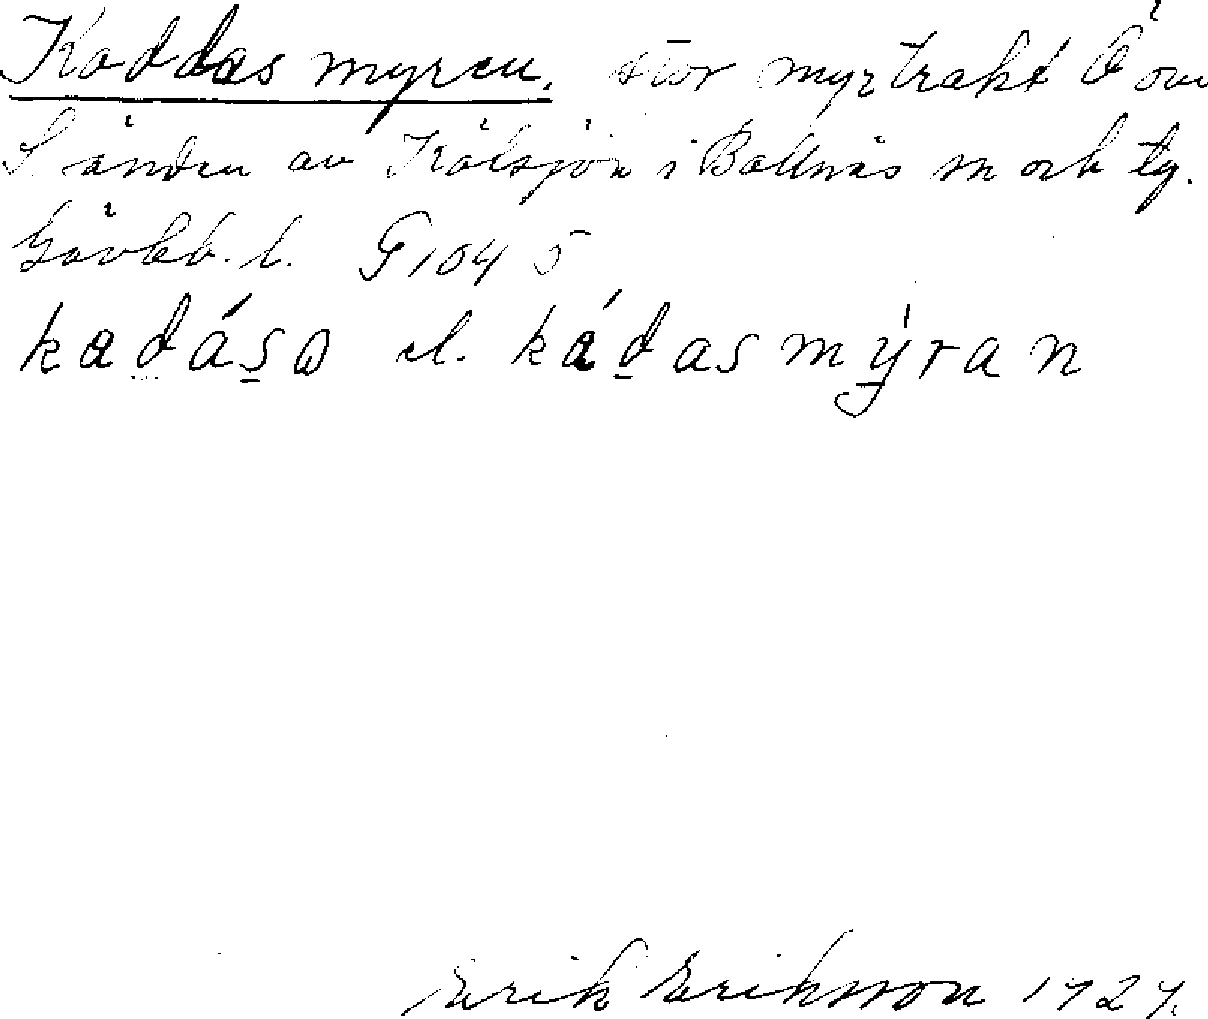 Kaddasmyren, stor myrtrakt Ö om
S änden av Kölsjön i Bollnäs sn och tg.
Gävleb. l. G 104 5
kadása el. kádasmýran
Erik Eriksson 1927.